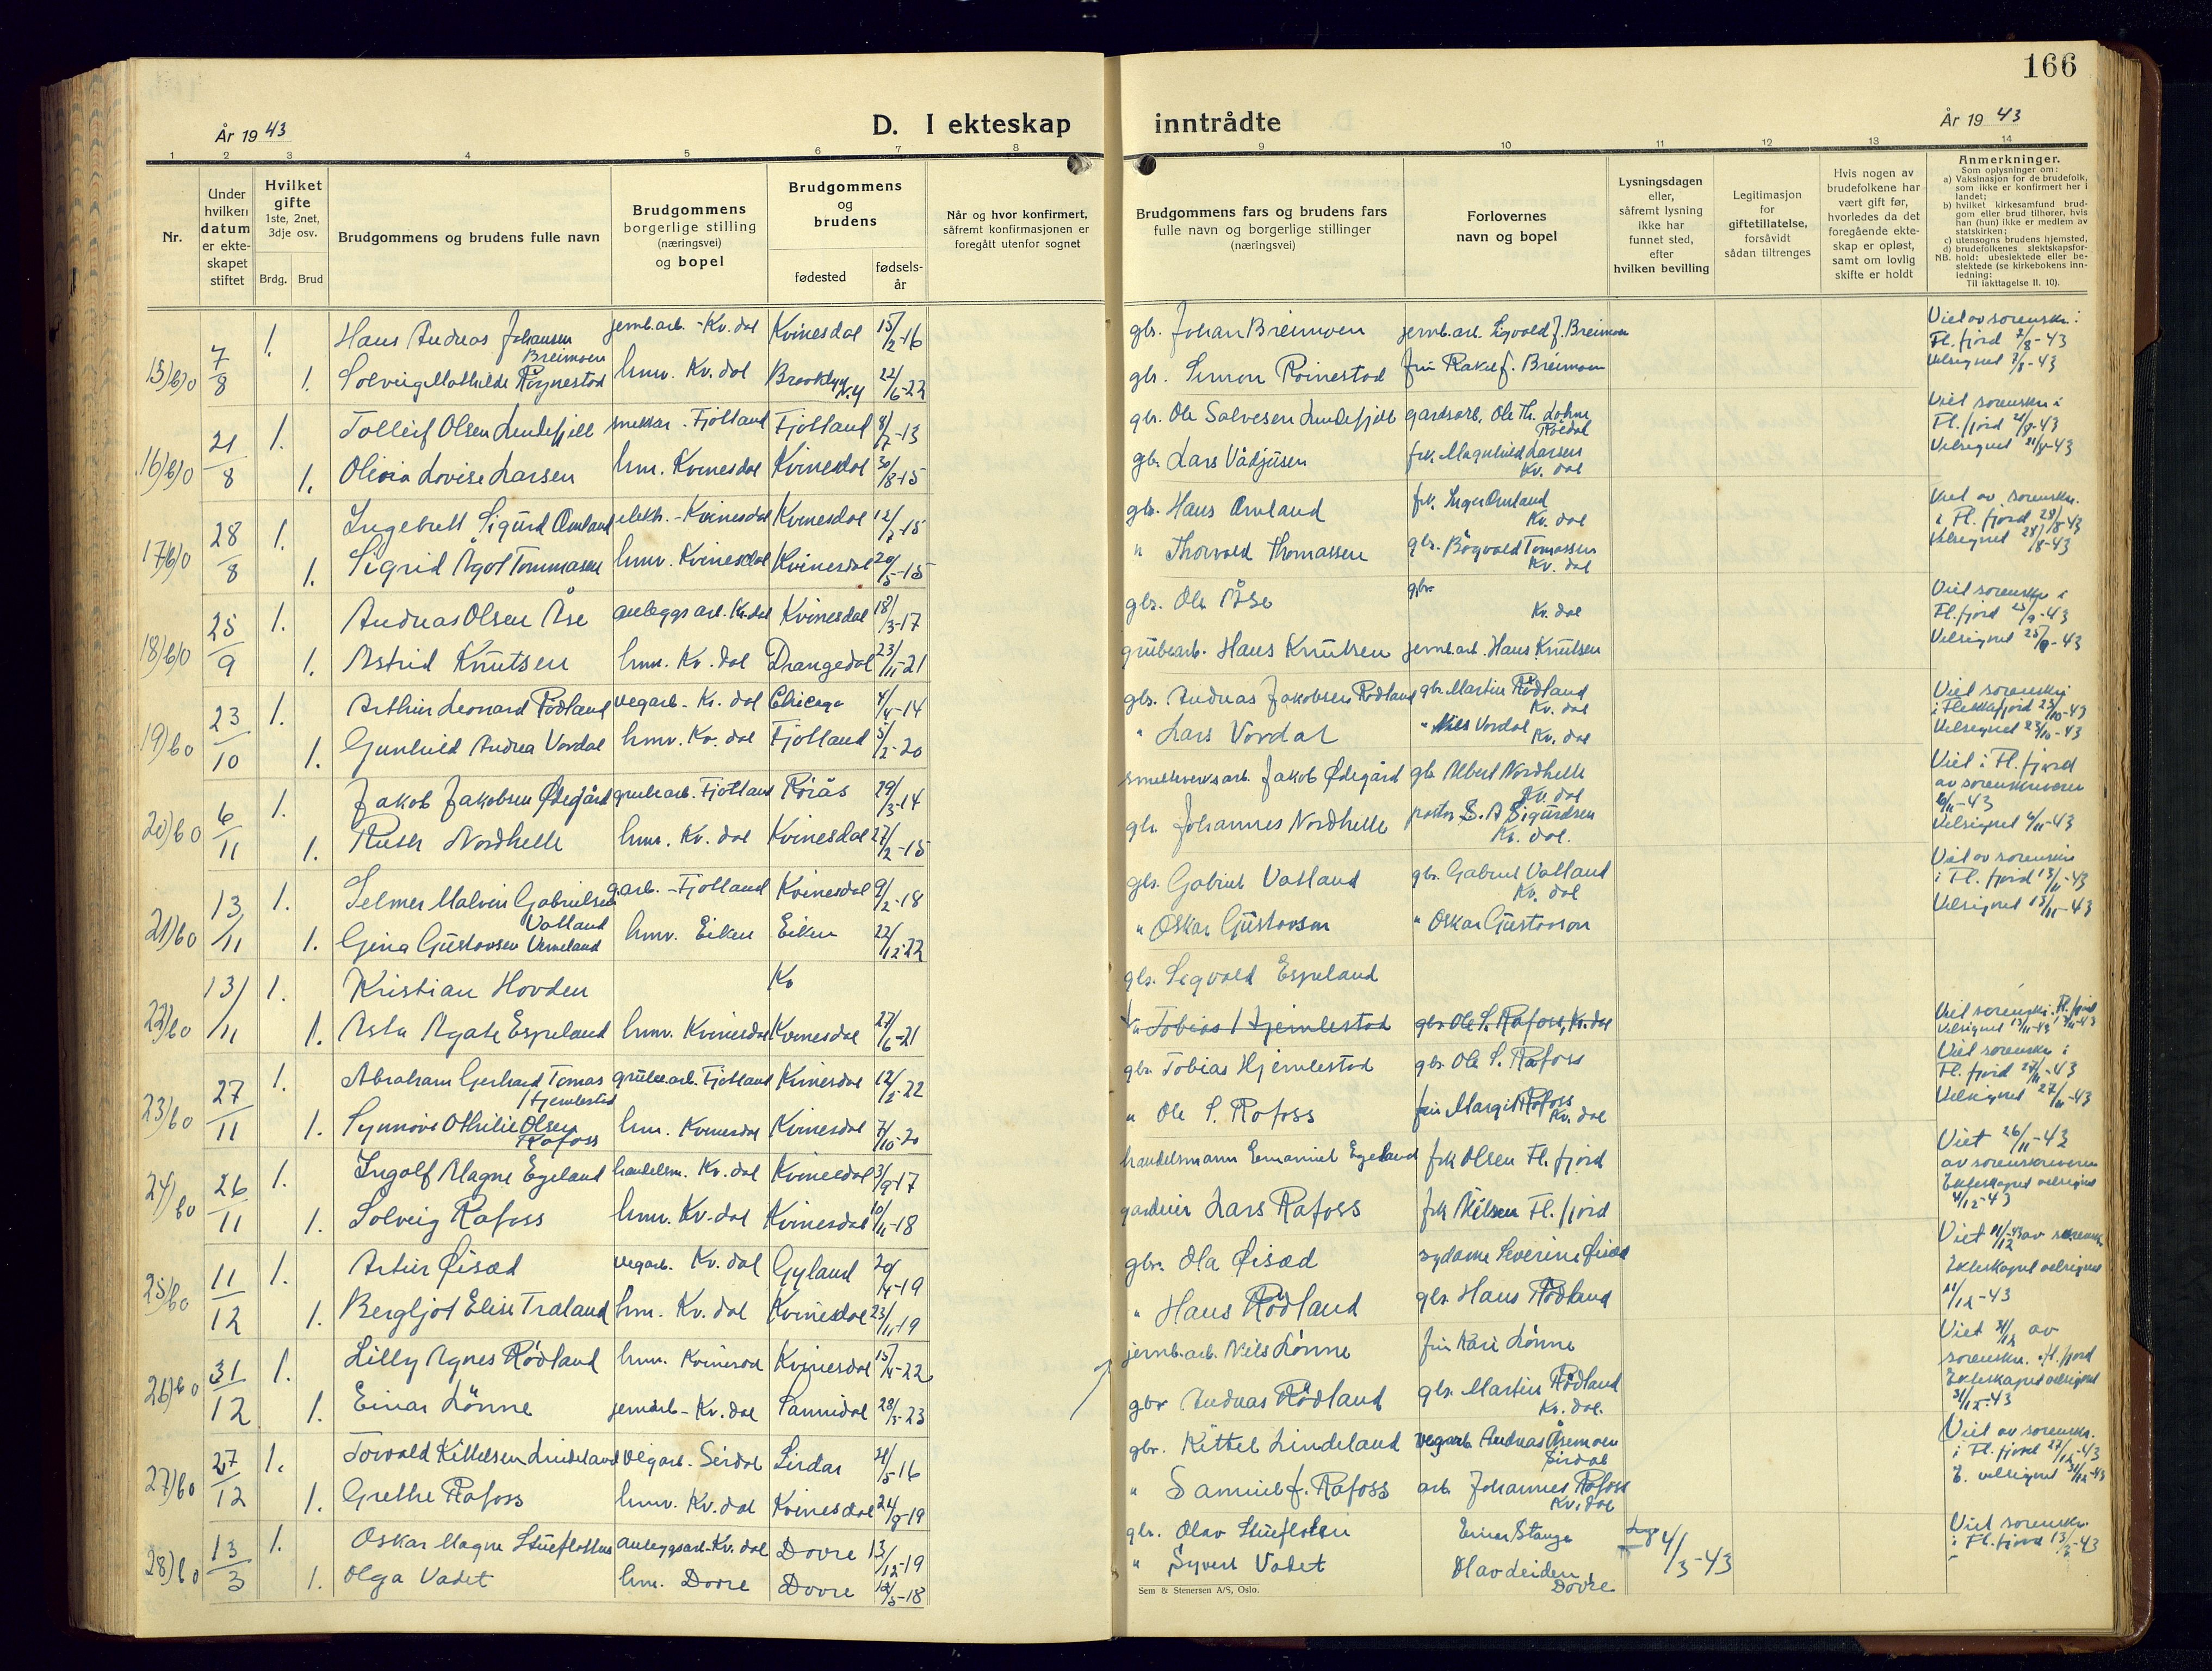 166
År 1943
D. I ekteskap
inntrådte
År 1943
1 2 3 4 5 6 7 8 9 10 11 12 13 14
Nr.
Under hvilken datum er ekte-skapet stiftet
Hvilket gifte 1ste, 2net, 3dje osv.
Brdg. Brud
Brudgommens og brudens fulle navn
Brudgommens borgerlige stilling (næringsvei) og bopel
Brudgommens og brudens
fødested
fødsels-år
Når og hvor konfirmert, såfremt konfirmasjonen er foregått utenfor sognet
Brudgommens fars og brudens fars fulle navn og borgerlige stillinger (næringsvei)
Forlovernes navn og bopel
Lysningsdagen eller, såfremt lysning ikke har funnet sted, efter hvilken bevilling
Legitimasjon for giftetillatelse, forsåvidt sådan tiltrenges
Hvis nogen av brudefolkene har vært gift før, hvorledes da det foregående ekte-skap er opløst, samt om lovlig skifte er holdt
Anmerkninger.
Som oplysninger om:
a) Vaksinasjon for de brudefolk, som ikke er konfirmert her i landet;
b) hvilket kirkesamfund brud-gom eller brud tilhører, hvis han (hun) ikke er medlem av statskirken;
c) utensogns brudens hjemsted,
d) brudefolkenes slektskapsfor-hold: ubeslektede eller be-slektede (se kirkebokens inn-ledning:
NB.
Til iakttagelse II. 10).
15) b) 0 7/8 1. Hans Andreas Johansen Breimoen jernb.arb. - Kv.dal Kvinesdal 15/2-16 gbr. Johan Breimoen jernb.arb. Sigvald J. Breimoen Viet av sorenskr. i Fl.fjord 7/8-43
1. Solveig Mathilde Røynestad hmv. Kv.dal Brooklyn N.Y 22/6-22 gbr. Simon Roinestad fru Rakel J. Breimoen Velsignet 7/8-43
16) b) 0 21/8 1. Tolleif Olsen Lindefjell snekker. Fjotland Fjotland 8/7-13 gbr. Ole Salvesen Lindefjell gardsarb. Ole Th. Lohne Viet sorenskr i Fl.fjord 21/8-43
1. Olivia Lovise Larsen hm. Kvinesdal Kvinesdal 30/8-15 gbr. Lars Vådjusen frk. Magnhild Larsen Kv. dal Velsignet 21/8-43
17) b) 0 28/8 1. Ingebrett Sigurd Omland elektr. - Kvinesdal Kvinesdal 12/7-15 gbr. Hans Omland frk. Inger Omland Kv. dal Viet av sorenskr. i Fl. fjord 28/8-43
1. Sigrid Ågot Tommasen hmv. Kvinesdal Kvinesdal 20/5-15 " Thorvald Thomassen gbr. Bågvald Tomassen Kv. dal Velsignet 28/8-43
18) b) 0 25/9 1. Andreas Olsen Åse anleggsarb. Kv.dal Kvinesdal 18/3-17 gbr. Ole Åse gbr. Kv. dal Viet sorenskr i Fl.fjord 25/9-43
1. Astrid Knutsen hm. Kv. dal Drangedal 23/11-21 grubearb. Hans Knutsen jernb.arb. Hans Knutsen Velsignet 25/9-43
19) b 0 23/10 1. Arthur Leonard Rødland vegarb. Kv. dal Chicago 4/4-14 gbr. Andreas Jakobsen Rødland gbr. Martin Rødland Kv. dal Viet sorenskr. i Flekkefjord 23/10-43
1. Gunhild Andrea Vordal hmv. Kv. dal Fjotland 5/2-20 " Lars Vordal " Nils Vordal Kv. dal Velsignet 23/10-43
20) b 0 6/11 1. Jakob Jakobsen Ødegård grubearb. Fjotland Rörås 29/3-14 smelteverksarb. Jakob Ødegård gbr. Albert Nordhelle Kv. dal Viet i Fl. fjord av sorenskriveren 6/11-43
1. Ruth Nordhelle hmv. Kv. dal Kvinesdal 27/2-15 gbr. Johannes Nordhelle pastor S. A. Sigurdsen Kv. dal. Velsignet 6/11-43
21) b 0 13/11 1. Selmer Malvin Gabrielsen Vatland g.arb. - Fjotland Kvinesdal 9/2-18 gbr. Gabriel Vatland gbr. Gabriel Vatland Kv. dal Viet av sorenskr i Fl. fjord 13/11-43
1. Gina Gustavsen Verneland hmv. Eiken Eiken 22/12-22 " Oskar Gustavson " Oskar Gustavson Velsignet 13/11-43
22) b 0 13/11 1. Kristian Hovden Kv gbr. Sigvald Espeland
1. Asta Agate Espeland hmv. Kvinesdal Kvinesdal 27/6-21 " Tobias Hjemlestad gbr. Ole S. Rafoss, Kv. dal Viet sorenskr. Fl.fjord 13/11-43 Velsignet 13/11-43
23) b 0 27/11 1. Abraham Gerhard Tomas Hjemlestad grubearb. Fjotland Kvinesdal 12/5-22 gbr. Tobias Hjemlestad gbr. Ole S. Rafoss Viet sorenskr i Fl. fjord 27/11-43
1. Synnøve Othilie Olsen Rafoss hm. Kvinesdal Kvinesdal 7/10-20 " Ole S. Rafoss fru Margit Rafoss Kv. dal Velsignet 27/11-43
24) b 0 26/11 1. Ingolf Magne Egeland handelsm. Kv. dal Kvinesdal 3/9-17 handelsmann Emanuel Egeland frk Olsen Fl. fjord Viet 26/11-43 av sorenskriveren
1. Solveig Rafoss hmv. Kv. dal Kvinesdal 10/11-18 gardeier Lars Rafoss frk Nilsen Fl. fjord Ekteskapet velsignet 4/12-43
25) b 0 11/12 1. Artur Øisæd vegarb. Kv. dal Gyland 20/4-19 gbr. Ola Øisæd sydame Severine Øisæd Viet 11/12-43 av sorenskr
1. Bergljot Elise Træland hm. Kv. dal Kvinesdal 23/11-19 " Hans Rødland gbr. Hans Rødland Ekteskapet velsignet 11/12-43
26) b 0 31/12 1. Lilly Agnes Rødland hm. Kvinesdal Kvinesdal 15/4-22 jernb.arb. Nils Lønne fru Kari Lønne Viet 31/12 av sorenskr. Fl.fjord
1. Einar Lønne jernarb - Kv. dal Sannidal 28/3-23 gbr Andreas Rødland gbr. Martin Rødland Kv. dal. Ekteskapet velsignet 31/12-43
27) b 0 27/12 1. Torvald Kittelsen Lindeland vegarb. Sirdal Sirdal 21/5-16 gbr. Kittel Lindeland vegarb. Andreas Åsemoen Sirdal Viet av sorenskr. i Fl. fjord 27/12-43
1. Grethe Rafoss hmv. Kv. dal Kvinesdal 24/8-19 " Samuel J. Rafoss arb. Johannes Rafoss Kv. dal E. velsignet 31/12-43
28) b 0 13/3 1. Oskar Magne Stueflotten anleggsarb - Kv. dal Dovre 13/12-19 gbr. Olav Stueflotten Einar Stange 4/3-43 Viet sorenskr. i Fl. fjord 13/3-43
1. Olga Vadet hm. Dovre Dovre 12/5-18 " Syvert Vadet Olav Leiden Dovre
Sem & Stenersen A/S, Oslo.